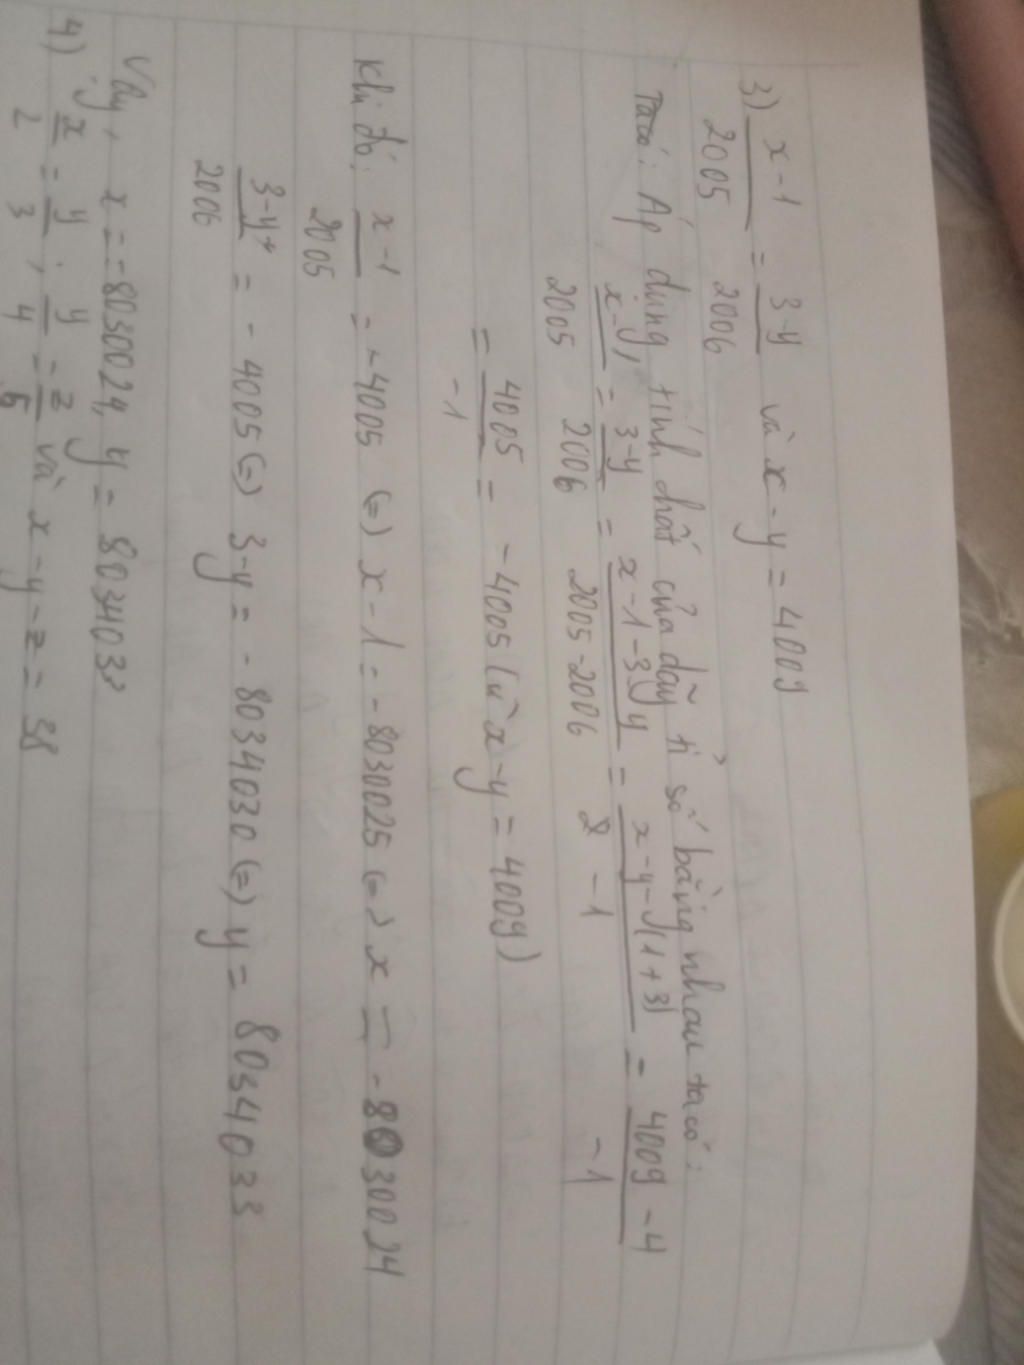 3) x-1/2005 = 3-y/2006 và x-y = 4009
Ta có: Áp dụng tính chất của dãy tỉ số bằng nhau ta có:
x-1/2005 = 3-y/2006 = x-1-3+y/2005-2006 = x-y-(1+3)/-1 = 4009-4/-1
= 4005/-1 = -4005 (vì x-y = 4009)
Khi đó: x-1/2005 = -4005 (=) x-1 = -8030025 (=) x = -8030024
3-y/2006 = -4005 (=) 3-y = -8034030 (=) y = 8034033
Vậy, x = -8030024, y = 8034033
4) x/2 = y/3; y/4 = z/5 và x-y-z = 38